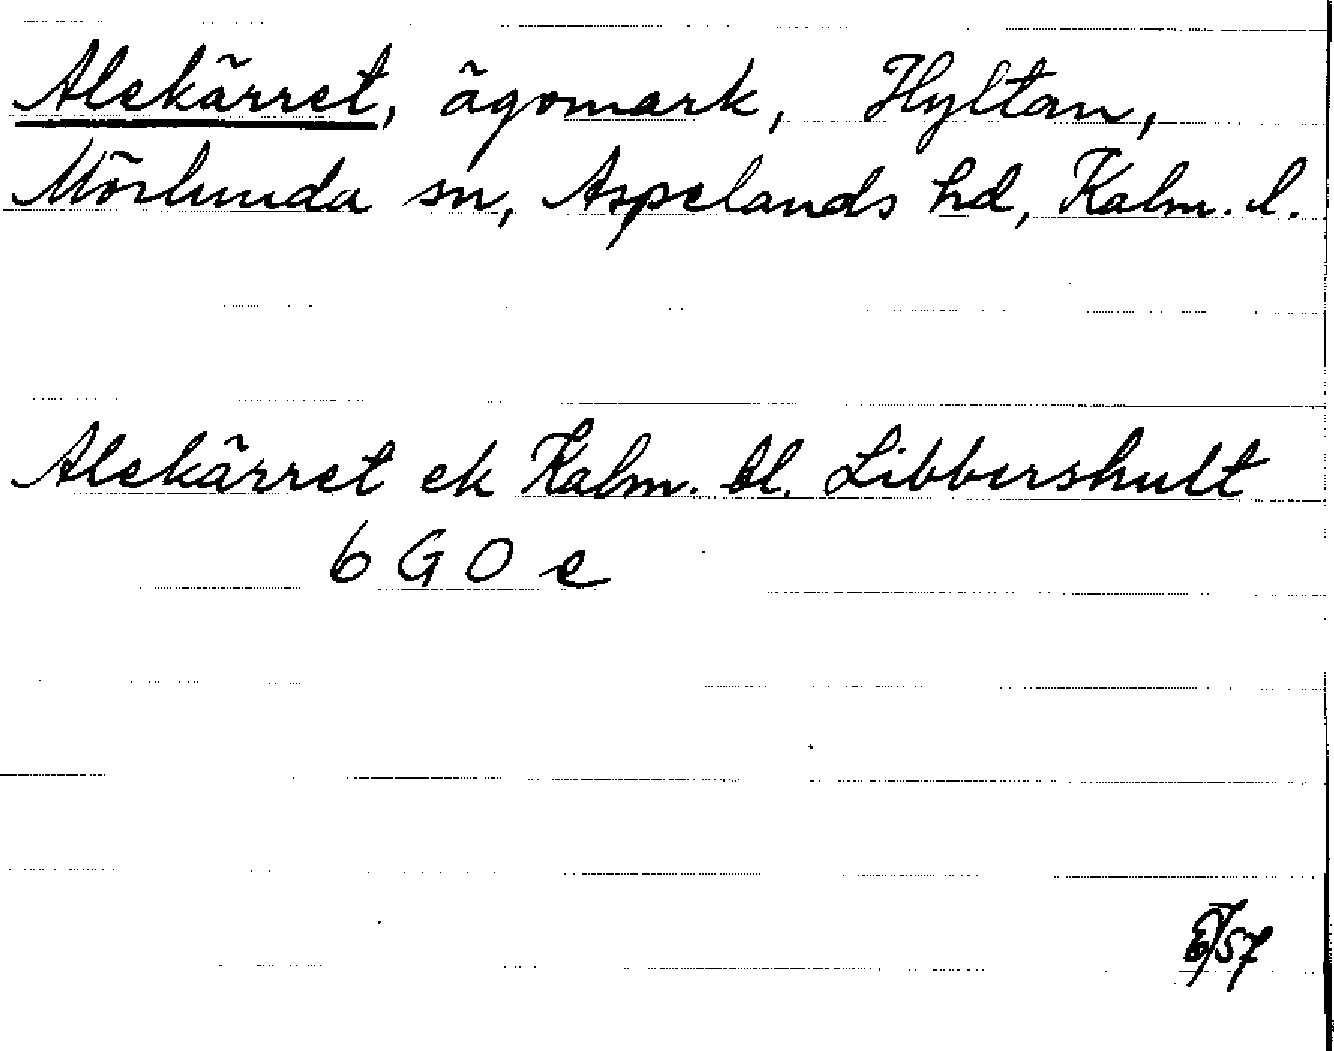 Alekärret, ägomark, Hyltan,
Mörlunda sn, Aspelands hd, Kalm. l.
Alekärret ek Kalm. bl. Libbershult
6 G 0 e